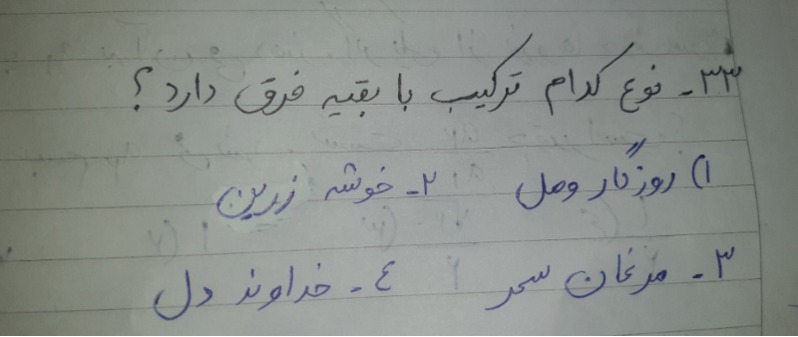 ۳۳- نوع کدام ترکیب با بقیه فرق دارد؟
۱) روزگار وصل ۲- خوشه زرین
۳- مرغان سحر ٤- خداوند دل